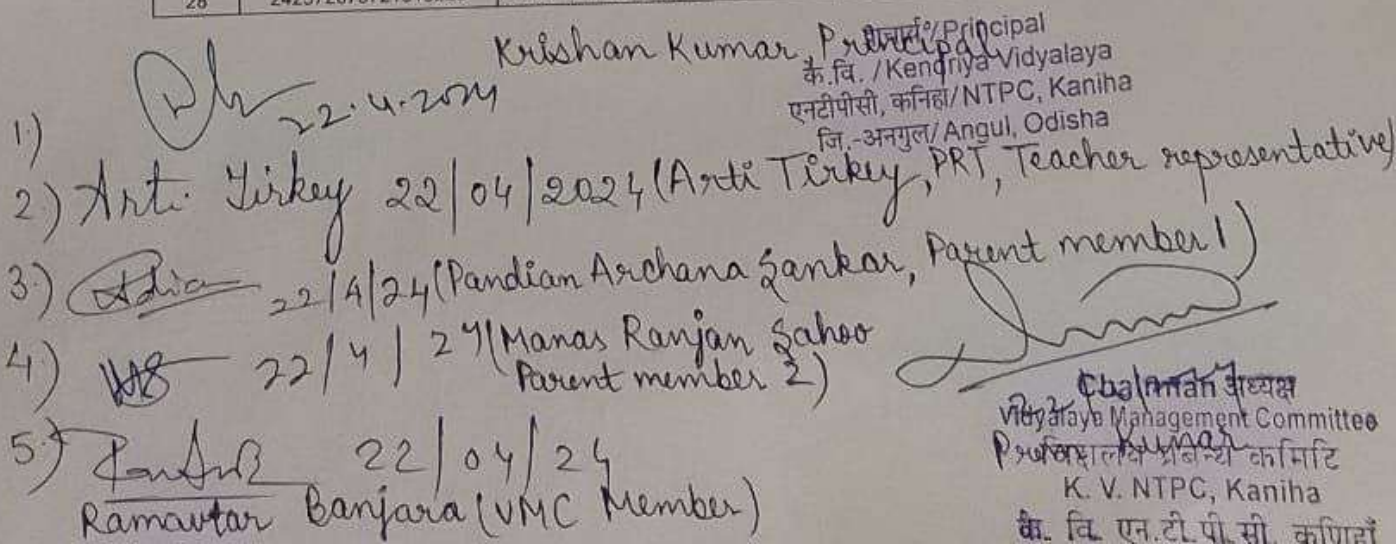 28
Krishan Kumar, Principal
प्राचार्य/Principal
के.वि. /Kendriya Vidyalaya
एनटीपीसी, कनिहा/NTPC, Kaniha
जि.-अनगुल/Angul, Odisha
1) 22.4.2024
2) Arti Tirkey 22/04/2024 (Arti Tirkey, PRT, Teacher representative)
3) 22/4/24 (Pandian Archana Sankar, Parent member 1)
4) 22/4/24 (Manas Ranjan Sahoo
Parent member 2)
5) 22/04/24
Ramavtar Banjara (VMC Member)
Chairman अध्यक्ष
Vidyalaya Management Committee
Kumar
विद्यालय प्रबन्ध कमिटि
K. V. NTPC, Kaniha
के. वि. एन.टी.पी.सी. कणिहाँ